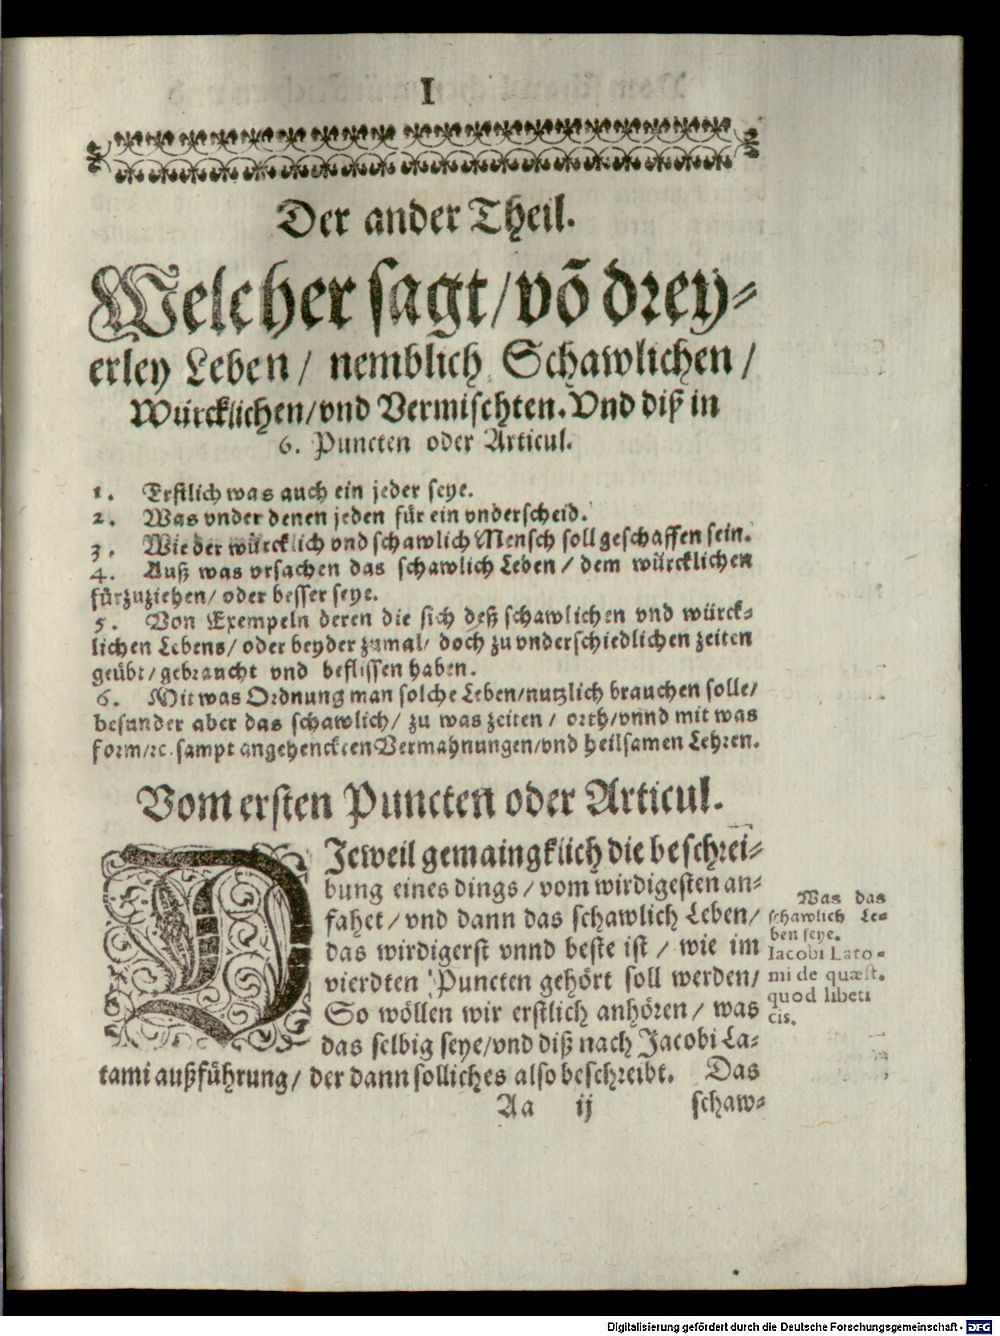 I
Der ander Theil.
Welcher sagt/ võ drey-
erley Leben/ nemblich Schawlichen/
Würcklichen/ vnd Vermischten. Vnd diß in
6. Puncten oder Articul.
1. Erstlich was auch ein jeder seye.
2. Was vnder denen jeden für ein vnderscheid.
3. Wie der würcklich vnd schawlich Mensch soll geschaffen sein.
4. Auß was vrsachen das schawlich Leben/ dem würcklichen
fürzuziehen/ oder besser seye.
5. Von Exempeln deren die sich deß schawlichen vnd würck-
lichen Lebens/ oder beyder zumal/ doch zu vnderschiedlichen zeiten
geübt/ gebraucht vnd beflissen haben.
6. Mit was Ordnung man solche Leben/ nutzlich brauchen solle/
besunder aber das schawlich/ zu was zeiten/ orth/ vnnd mit was
form/ ꝛc. sampt angehenckten Vermahnungen/ vnd heilsamen Lehren.
Vom ersten Puncten oder Articul.
DJeweil gemaingklich die beschrei-
bung eines dings/ vom wirdigesten an-
fahet/ vnd dann das schawlich Leben/
das wirdigerst vnnd beste ist/ wie im
vierdten Puncten gehört soll werden/
So wöllen wir erstlich anhören/ was
das selbig seye/ vnd diß nach Jacobi La-
tami außführung/ der dann solliches also beschreibt. Das
Was das
schawlich Le-
ben seye.
Iacobi Lato-
mi de quæst.
quod libeti
cis.
Aa ij schaw-
Digitalisierung gefördert durch die Deutsche Forschungsgemeinschaft - DFG